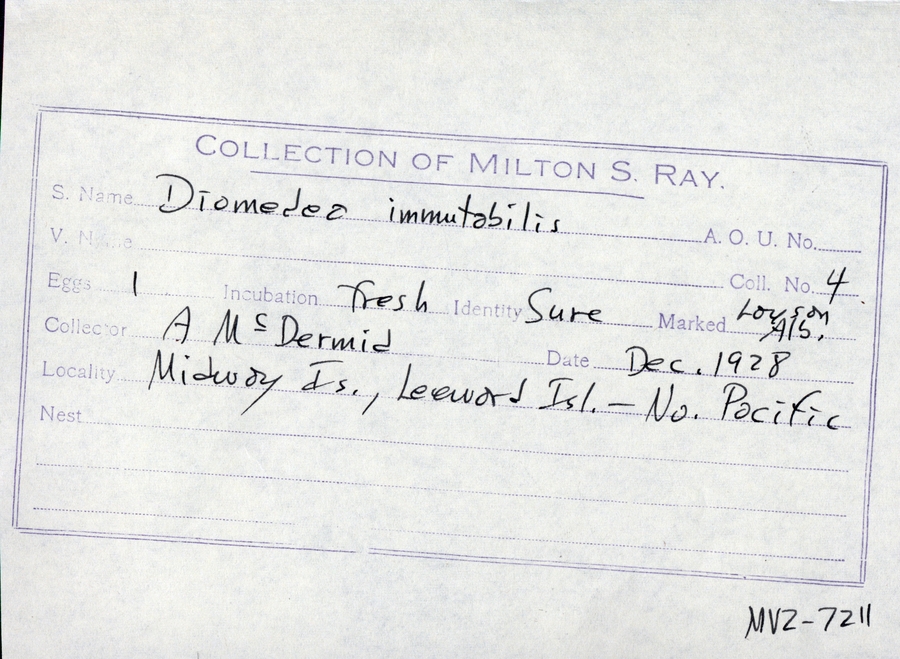 COLLECTION OF MILTON S. RAY.
S. Name Diomedea immutabilis A. O. U. No.
V. Name Coll. No. 4
Eggs 1 Incubation Fresh Identity Sure Marked Laysan Alb.
Collector A McDermid Date Dec. 1928
Locality Midway Is., Leeward Isl. — No. Pacific
Nest
MVZ-7211